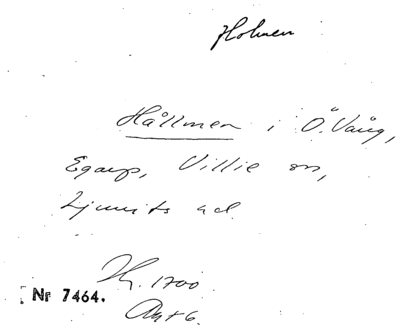 Holmen
Hållmen i Ö. Vång,
Egarp, Villie sn,
Ljunits hd
Nr 7464.
1700
Akt 6.